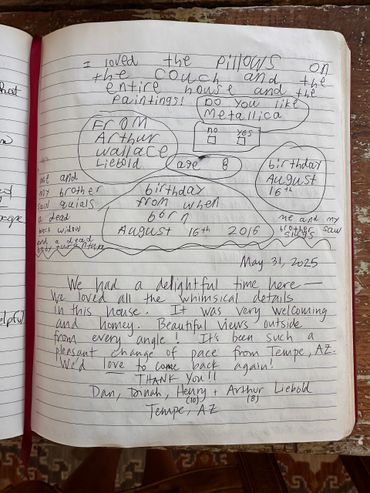 I loved the pillows on
the couch and the
entire house and the
paintings!
Do you like
Metallica
no yes
From
Arthur
wallace
Liebold
age 8
birthday
August
16th
me and
my brother
saw quails
a dead
black widow
and a dead
birthday
from when
born
August 16th 2016
me and my
brother saw
slugs
May 31, 2025
We had a delightful time here —
we loved all the whimsical details
in this house. It was very welcoming
and homey. Beautiful views outside
from every angle! It's been such a
pleasant change of pace from Tempe, AZ.
We'd love to come back again!
THANK YOU!!
Dan, Dinah, Henry + Arthur Liebold
(10) (8)
Tempe, AZ